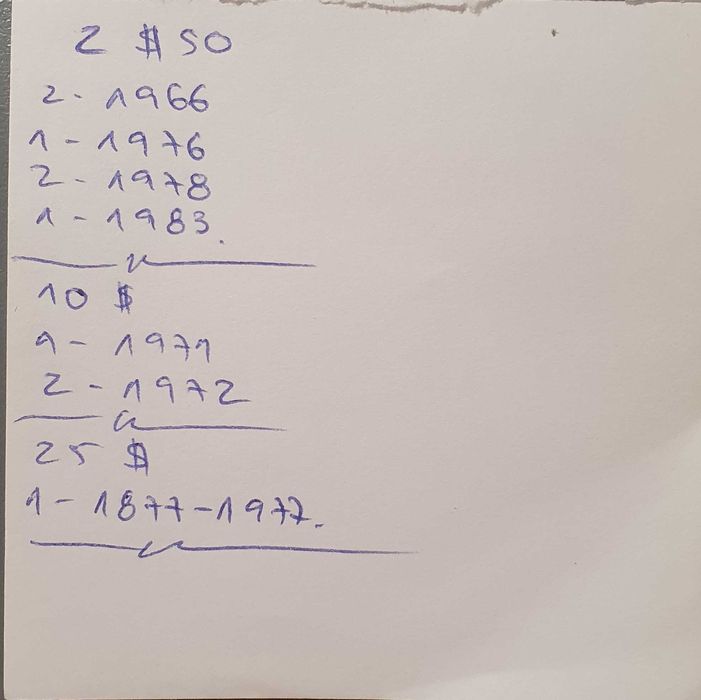 2 $ 50
2 - 1966
1 - 1976
2 - 1978
1 - 1983.
10 $
1 - 1971
2 - 1972
25 $
1 - 1877 - 1977.